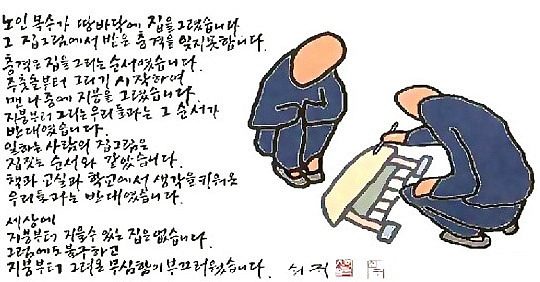 노인 목수가 땅바닥에 집을 그렸습니다
그 집그림에서 받은 충격을 잊지못합니다.
충격은 집을 그리는 순서였습니다.
주춧돌부터 그리기 시작하여
맨 나중에 지붕을 그렸습니다.
지붕부터 그리는 우리들과는 그 순서가
반대였습니다.
일하는 사람의 집그림은
집짓는 순서와 같았습니다.
책과 교실과 학교에서 생각을 키워온
우리들과는 반대였습니다.
세상에
지붕부터 지을 수 있는 집은 없습니다.
그럼에도 불구하고
지붕부터 그려온 무심함이 부끄러웠습니다.